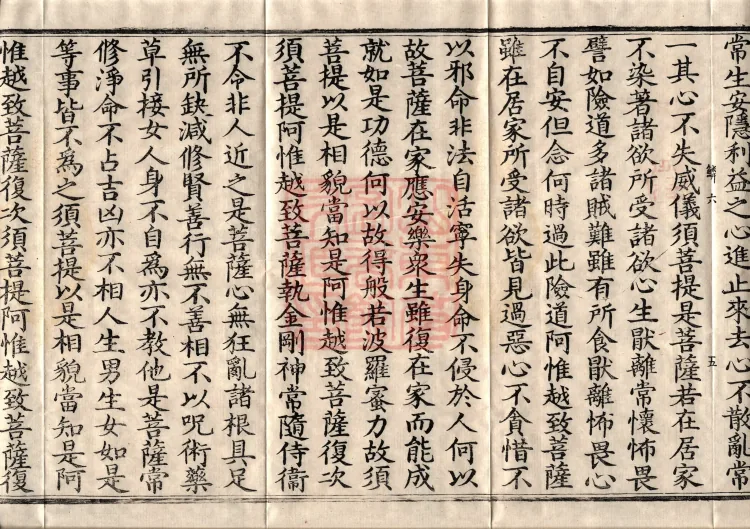 常生安隱利益之心進止來去心不散亂常
一其心不失威儀須菩提是菩薩若在居家
鱗六
五
不染著諸欲所受諸欲心生猒離常懷怖畏
譬如險道多諸賊難雖有所食猒離怖畏心
不自安但念何時過此險道阿惟越致菩薩
雖在居家所受諸欲皆見過惡心不貪惜不
以邪命非法自活寧失身命不侵於人何以
故菩薩在家應安樂衆生雖復在家而能成
就如是功德何以故得般若波羅蜜力故須
菩提以是相貌當知是阿惟越致菩薩復次
須菩提阿惟越致菩薩執金剛神常隨侍衞
不令非人近之是菩薩心無狂亂諸根具足
無所缺減修賢善行無不善相不以呪術藥
草引接女人身不自爲亦不教他是菩薩常
修淨命不占吉凶亦不相人生男生女如是
等事皆不爲之須菩提以是相貌當知是阿
惟越致菩薩復次須菩提阿惟越致菩薩復